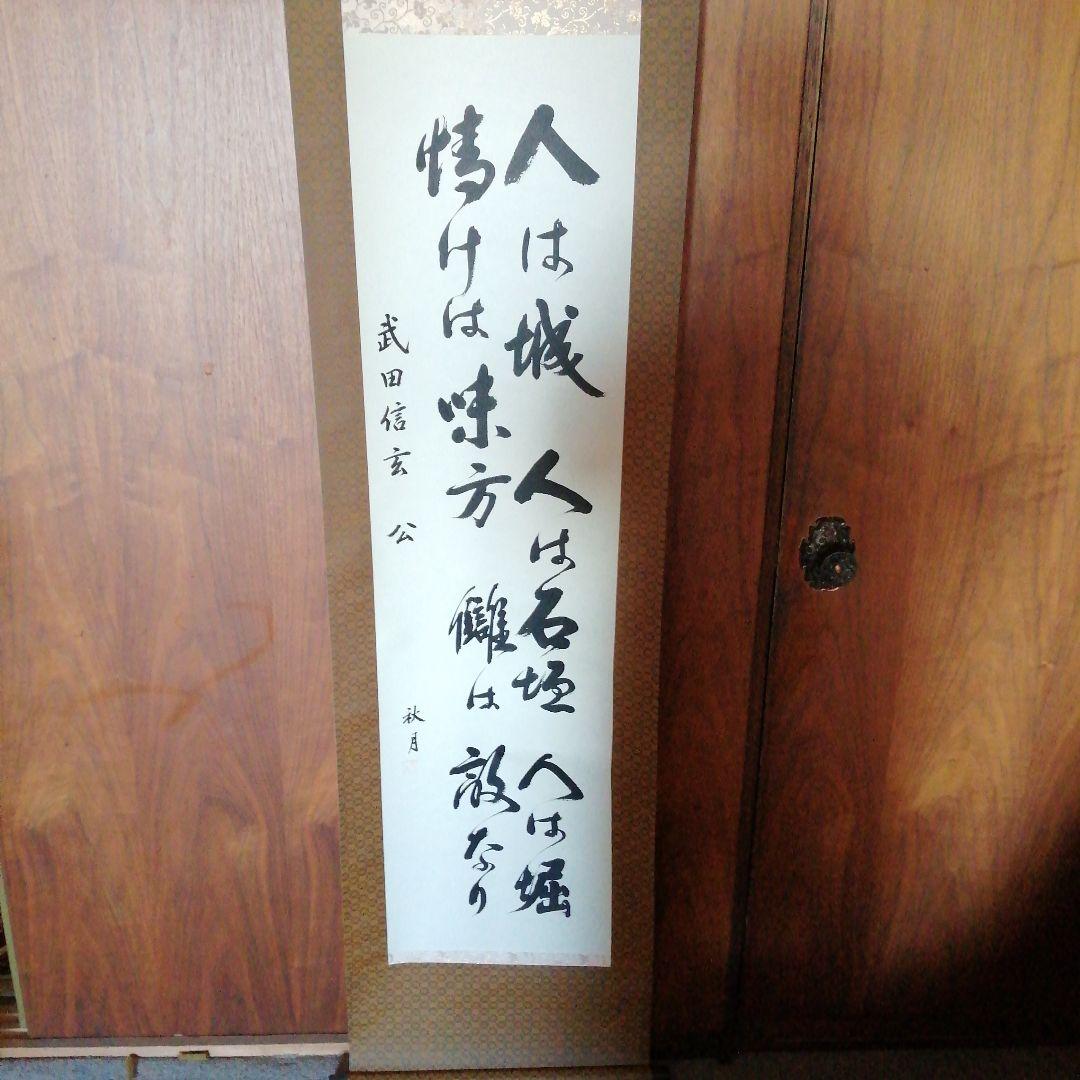 人は城 人は石垣 人は堀
情けは味方 讎は敵なり
武田信玄 公
秋月